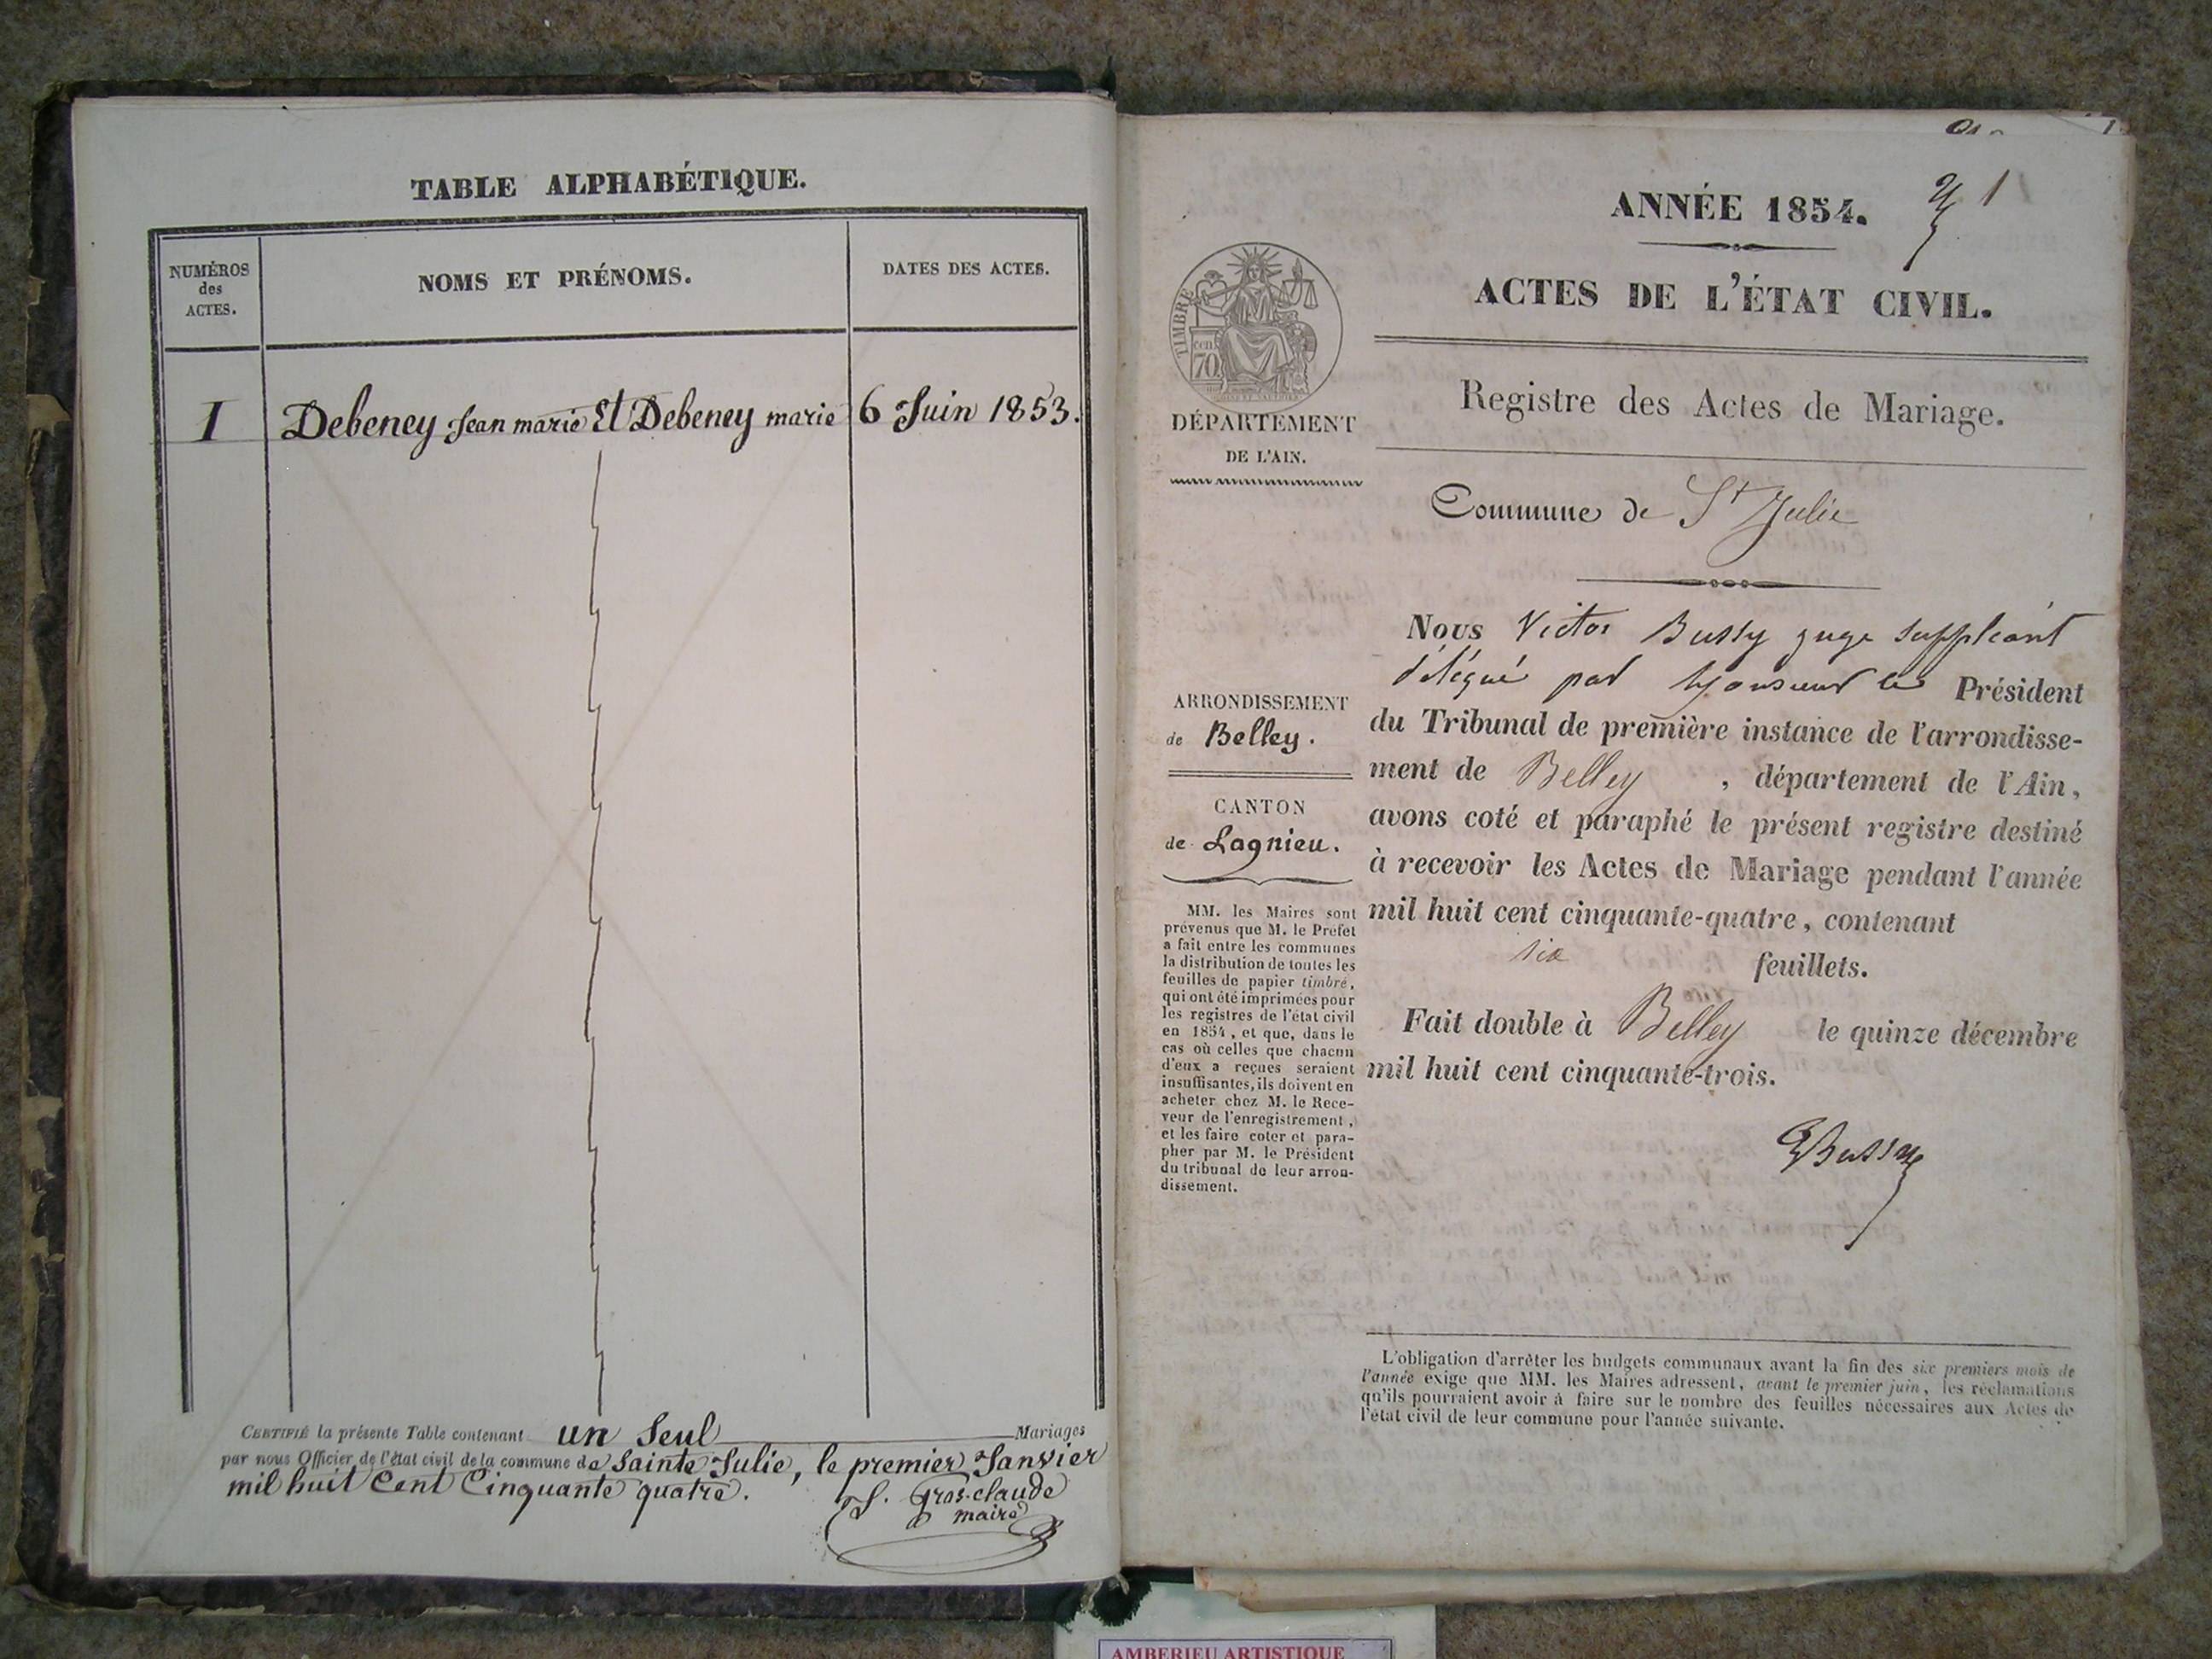 TABLE ALPHABÉTIQUE.
NUMÉROS
des
ACTES.
NOMS ET PRÉNOMS.
DATES DES ACTES.
1
Debeney Jean marie Et Debeney marie
6 Juin 1853.
CERTIFIÉ la présente Table contenant un Seul Mariages
par nous Officier de l'état civil de la commune de Sainte Julie, le premier Janvier
mil huit Cent Cinquante quatre.
J. Gros-claude
maire
1
ANNÉE 1854.
ACTES DE L'ÉTAT CIVIL.
TIMBRE
cen.
70
DÉPARTEMENT
DE L'AIN.
Registre des Actes de Mariage.
Commune de St Julie
ARRONDISSEMENT
de Belley.
CANTON
de Lagnieu.
MM. les Maires sont
prévenus que M. le Préfet
a fait entre les communes
la distribution de toutes les
feuilles de papier timbré,
qui ont été imprimées pour
les registres de l'état civil
en 1854, et que, dans le
cas où celles que chacun
d'eux a reçues seraient
insuffisantes, ils doivent en
acheter chez M. le Rece-
veur de l'enregistrement,
et les faire coter et para-
pher par M. le Président
du tribunal de leur arron-
dissement.
Nous Victor Bussy juge suppléant
délégué par Monsieur le Président
du Tribunal de première instance de l'arrondisse-
ment de Belley, département de l'Ain,
avons coté et paraphé le présent registre destiné
à recevoir les Actes de Mariage pendant l'année
mil huit cent cinquante-quatre, contenant
six feuillets.
Fait double à Belley le quinze décembre
mil huit cent cinquante-trois.
VBussy
L'obligation d'arrêter les budgets communaux avant la fin des six premiers mois de
l'année exige que MM. les Maires adressent, avant le premier juin, les réclamations
qu'ils pourraient avoir à faire sur le nombre des feuilles nécessaires aux Actes de
l'état civil de leur commune pour l'année suivante.
AMBERIEU ARTISTIQUE